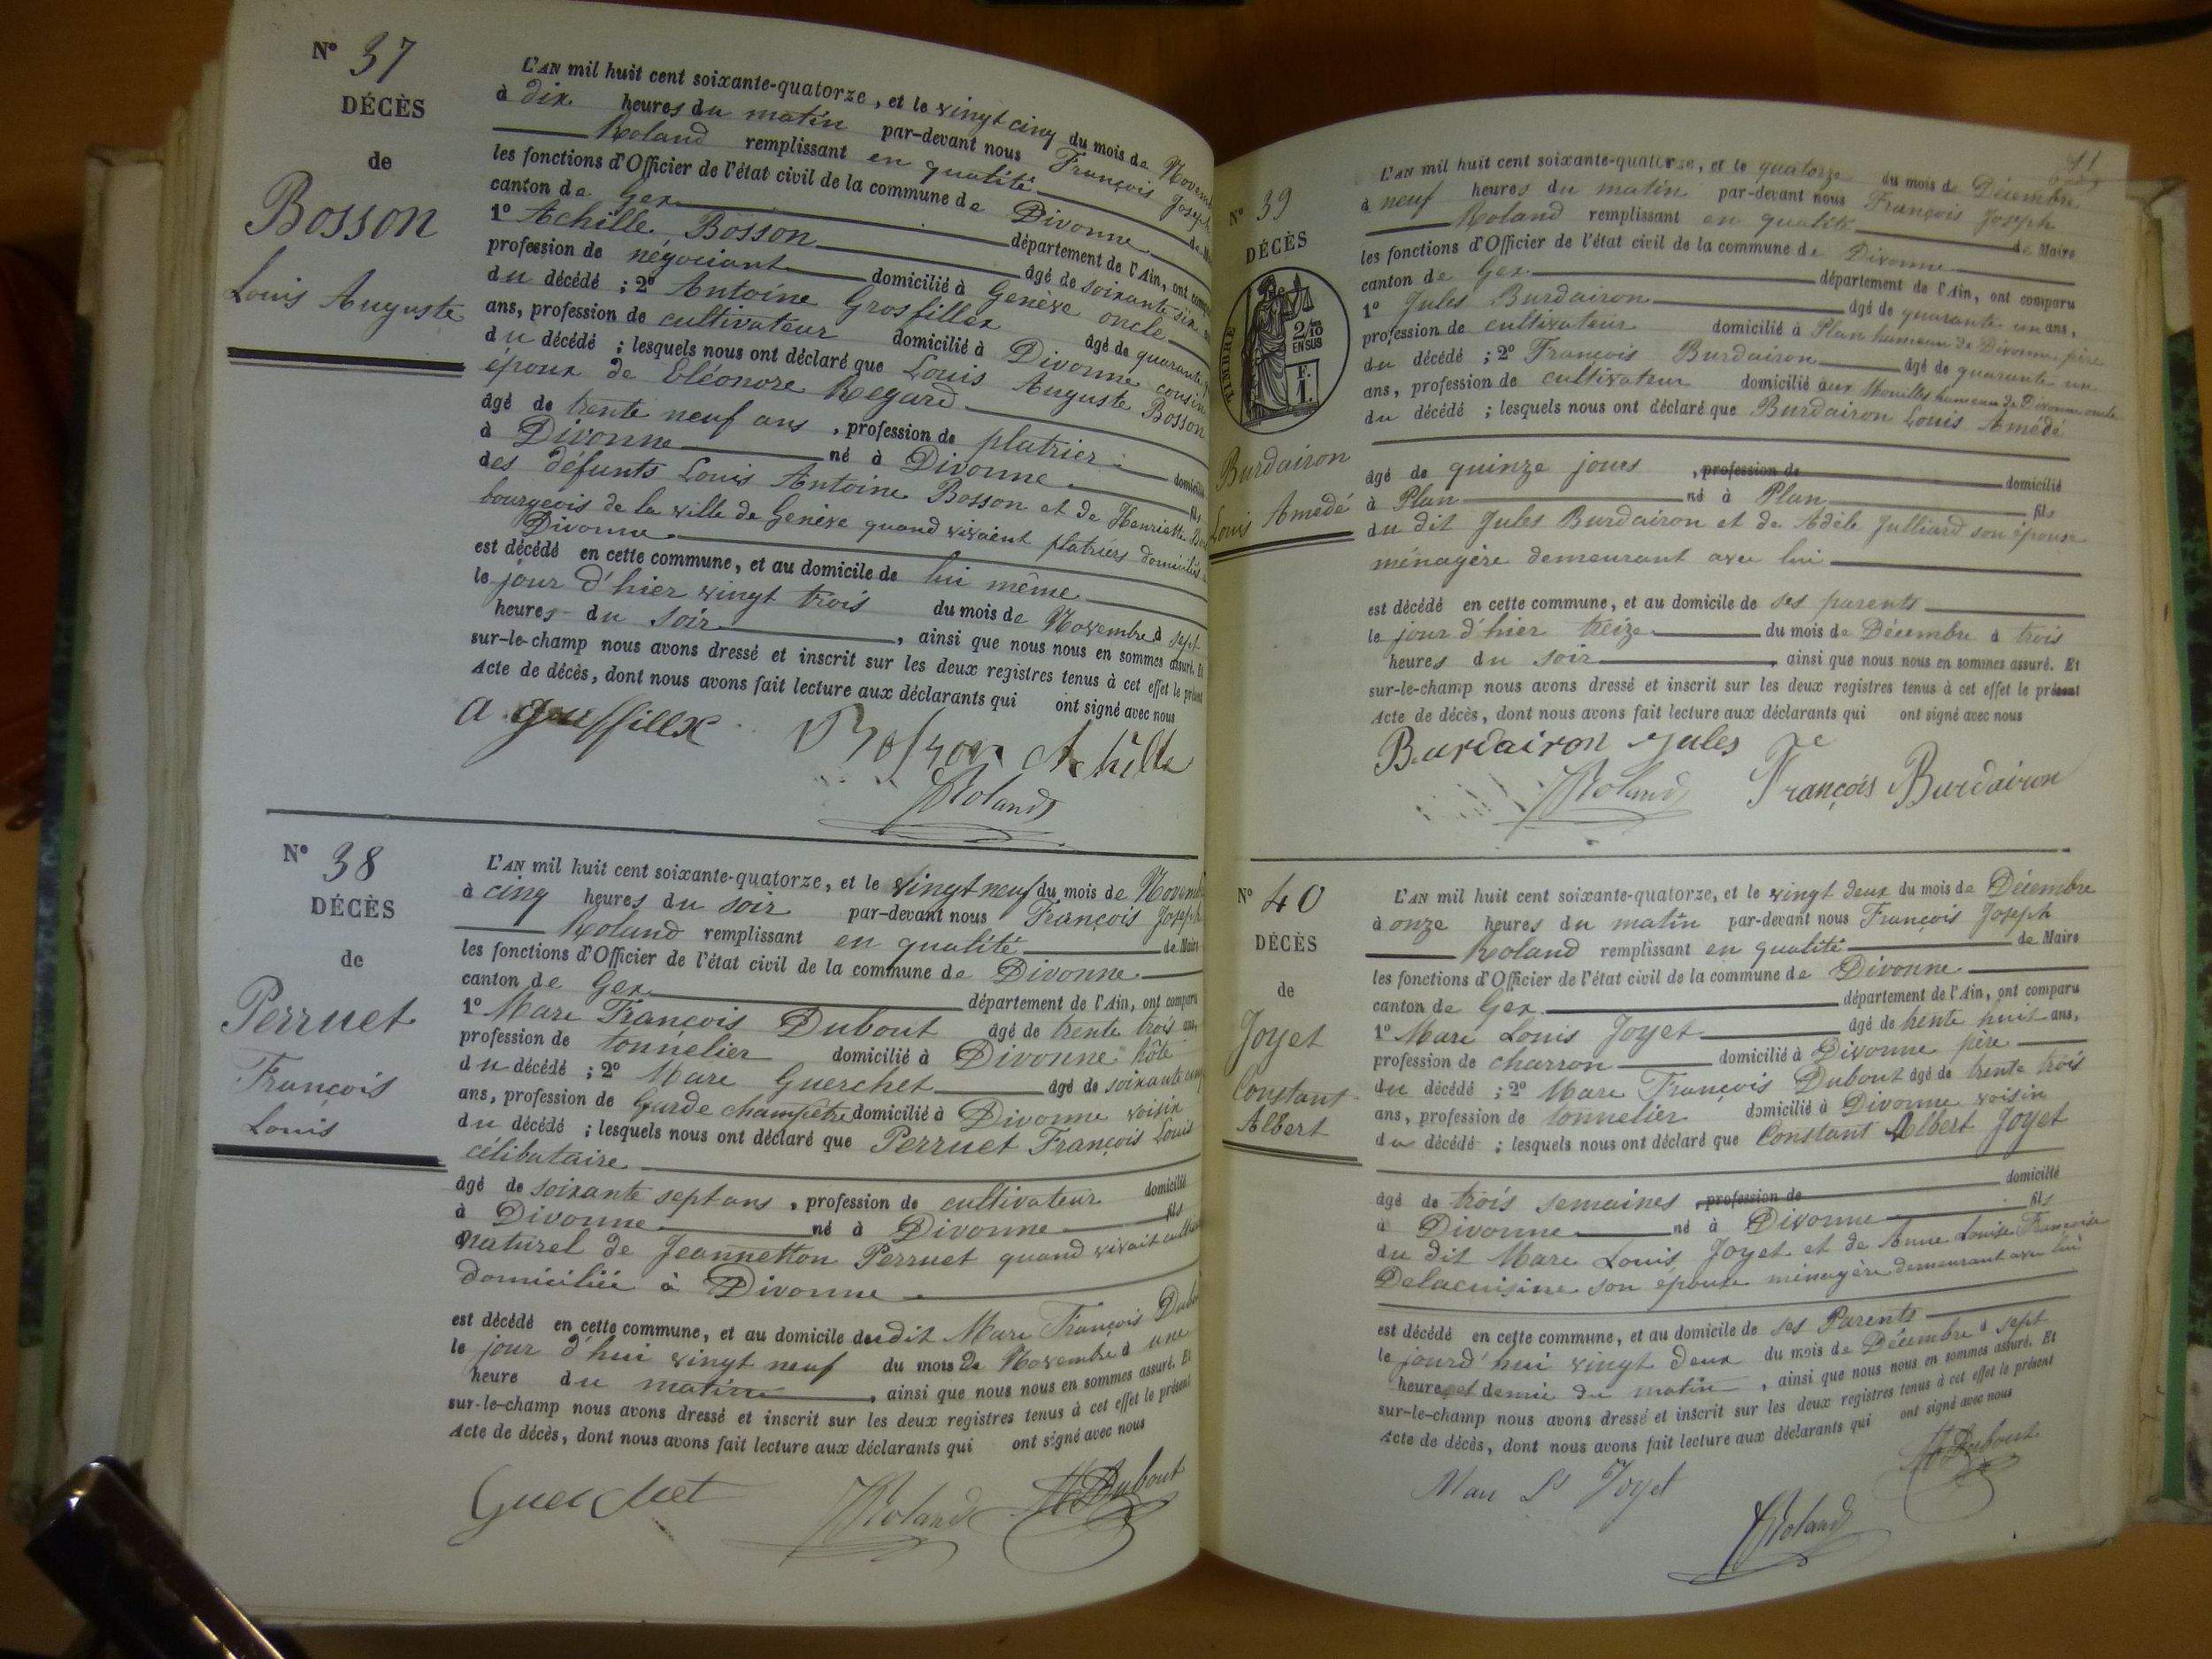 N° 37
DÉCÈS
de
Bosson
Louis Auguste
L'AN mil huit cent soixante-quatorze, et le vingt cinq du mois de Novem
à dix heures du matin par-devant nous François Joseph
Roland remplissant en qualité de M
les fonctions d'Officier de l'état civil de la commune de Divonne
canton de Gex département de l'Ain, ont comp
1° Achille Bosson âgé de soixante dix
profession de négociant domicilié à Genève oncle
du décédé ; 2° Antoine Grosfillex âgé de quarante
ans, profession de cultivateur domicilié à Divonne cousin
du décédé ; lesquels nous ont déclaré que Louis Auguste Bosson
époux de Eléonore Regard
âgé de trente neuf ans, profession de platrier domicilié
à Divonne né à Divonne fils
des défunts Louis Antoine Bosson et de Henriette
bourgeois de la ville de Genève quand vivaient platriers domiciliés à
Divonne
est décédé en cette commune, et au domicile de lui même
le jour d'hier vingt trois du mois de Novembre à sept
heures du soir, ainsi que nous nous en sommes assuré. Et
sur-le-champ nous avons dressé et inscrit sur les deux registres tenus à cet effet le présent
Acte de décès, dont nous avons fait lecture aux déclarants qui ont signé avec nous
Bosson Achille
Roland
N° 38
DÉCÈS
de
Perruet
François
Louis
L'AN mil huit cent soixante-quatorze, et le vingt neuf du mois de Novemb
à cinq heures du soir par-devant nous François Joseph
Roland remplissant en qualité de Maire
les fonctions d'Officier de l'état civil de la commune de Divonne
canton de Gex département de l'Ain, ont comparu
1° Marc François Dubout âgé de trente trois ans,
profession de tonnelier domicilié à Divonne hôte
du décédé ; 2° Marc Guerchet âgé de soixante cinq
ans, profession de Garde champêtre domicilié à Divonne voisin
du décédé ; lesquels nous ont déclaré que Perruet François Louis
célibataire
âgé de soixante sept ans, profession de cultivateur domicilié
à Divonne né à Divonne fils
naturel de Jeannetton Perruet quand vivait
domiciliée à Divonne
est décédé en cette commune, et au domicile du dit Marc François Dubou
le jour d'hui vingt neuf du mois de Novembre à une
heure du matin, ainsi que nous nous en sommes assuré. Et
sur-le-champ nous avons dressé et inscrit sur les deux registres tenus à cet effet le présent
Acte de décès, dont nous avons fait lecture aux déclarants qui ont signé avec nous
Guerchet Roland Dubout
N° 39
DÉCÈS
TIMBRE
2/10
EN SUS
F.
1.
Burdairon
Louis Amédé
L'AN mil huit cent soixante-quatorze, et le quatorze du mois de Décembre
à neuf heures du matin par-devant nous François Joseph
Roland remplissant en qualité de Maire
les fonctions d'Officier de l'état civil de la commune de Divonne
canton de Gex département de l'Ain, ont comparu
1° Jules Burdairon âgé de quarante un ans,
profession de cultivateur domicilié à Plan hameau de Divonne père
du décédé ; 2° François Burdairon âgé de quarante un
ans, profession de cultivateur domicilié aux Mouilles hameau de Divonne oncle
du décédé ; lesquels nous ont déclaré que Burdairon Louis Amédé
âgé de quinze jours, profession de domicilié
à Plan né à Plan fils
du dit Jules Burdairon et de Adèle Julliard son épouse
ménagère demeurant avec lui
est décédé en cette commune, et au domicile de ses parents
le jour d'hier treize du mois de Décembre à trois
heures du soir, ainsi que nous nous en sommes assuré. Et
sur-le-champ nous avons dressé et inscrit sur les deux registres tenus à cet effet le présent
Acte de décès, dont nous avons fait lecture aux déclarants qui ont signé avec nous
Burdairon Jules
Roland François Burdairon
N° 40
DÉCÈS
de
Joyet
Constant
Albert
L'AN mil huit cent soixante-quatorze, et le vingt deux du mois de Décembre
à onze heures du matin par-devant nous François Joseph
Roland remplissant en qualité de Maire
les fonctions d'Officier de l'état civil de la commune de Divonne
canton de Gex département de l'Ain, ont comparu
1° Marc Louis Joyet âgé de trente huit ans,
profession de charron domicilié à Divonne père
du décédé ; 2° Marc François Dubout âgé de trente trois
ans, profession de tonnelier domicilié à Divonne voisin
du décédé ; lesquels nous ont déclaré que Constant Albert Joyet
âgé de trois semaines, profession de domicilié
à Divonne né à Divonne fils
du dit Marc Louis Joyet et de Anne Louise Françoise
Delacuisine son épouse ménagère demeurant avec lui
est décédé en cette commune, et au domicile de ses Parents
le jourd'hui vingt deux du mois de Décembre à sept
heures et demie du matin, ainsi que nous nous en sommes assuré. Et
sur-le-champ nous avons dressé et inscrit sur les deux registres tenus à cet effet le présent
Acte de décès, dont nous avons fait lecture aux déclarants qui ont signé avec nous
Marc Ls Joyet Dubout
Roland